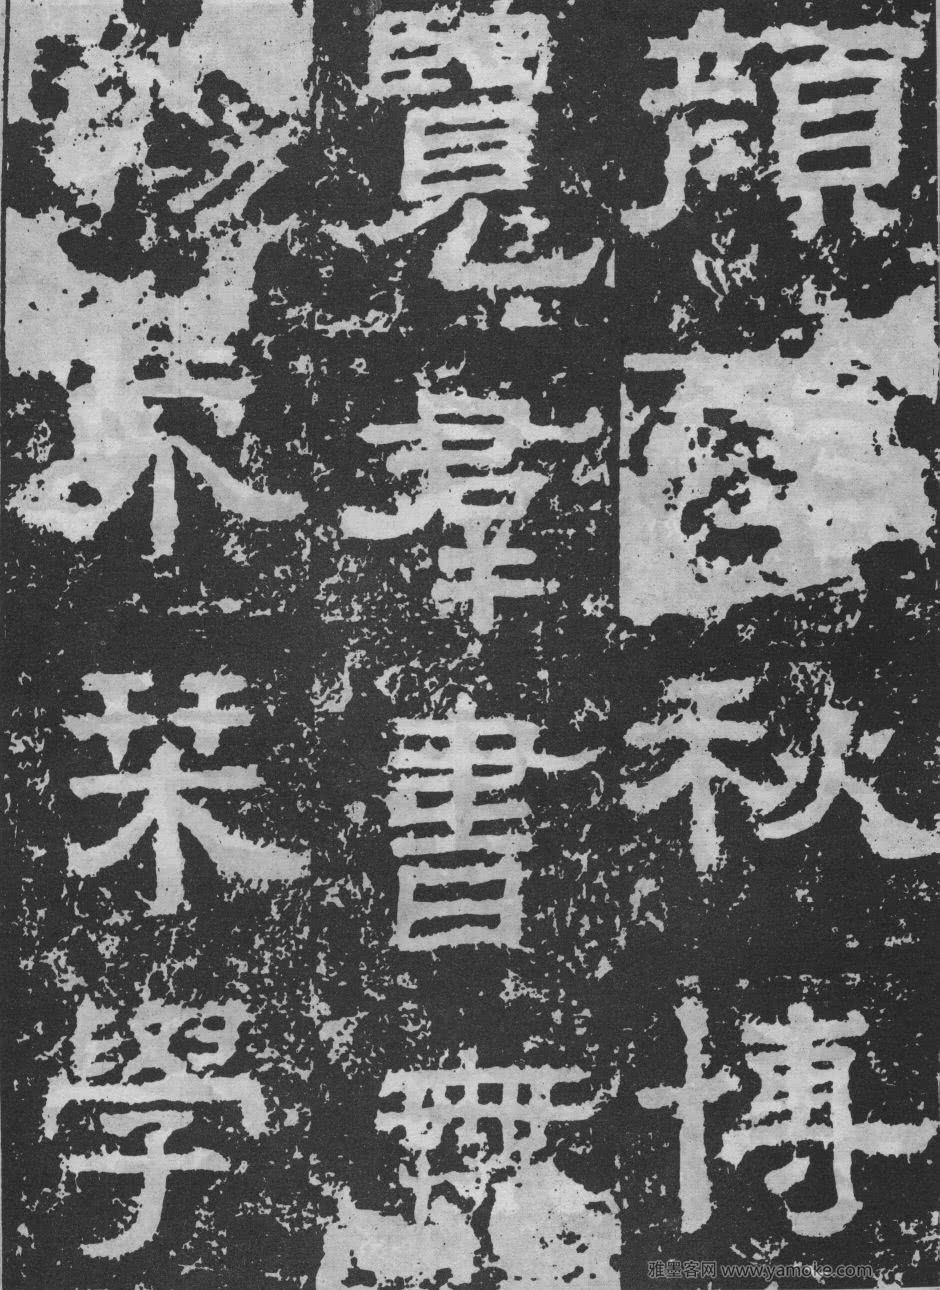 顏秋博
覽羣書無
物不栞學
雅墨客网 www.yamoke.com